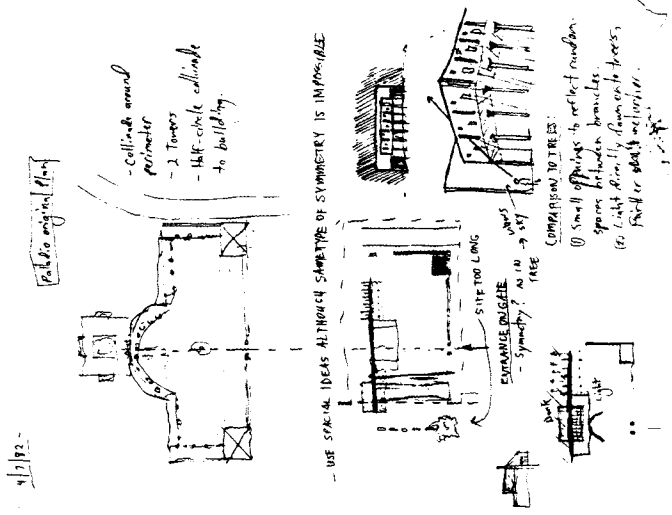 4/7/82 -
Palladio original Plan
- Collinade around
perimeter
- 2 Towers
- Half-circle collinade
to building.
- USE SPACIAL IDEAS ALTHOUGH SAME TYPE OF SYMMETRY IS IMPOSSIBLE
SITE TOO LONG
ENTRANCE ON GATE
- Symmetry?
AS IN
TREE
views
sky
COMPARISON TO TREES:
(1) Small openings to reflect random
spaces between branches.
(2) Light directly down onto trees,
further
Dark
Light